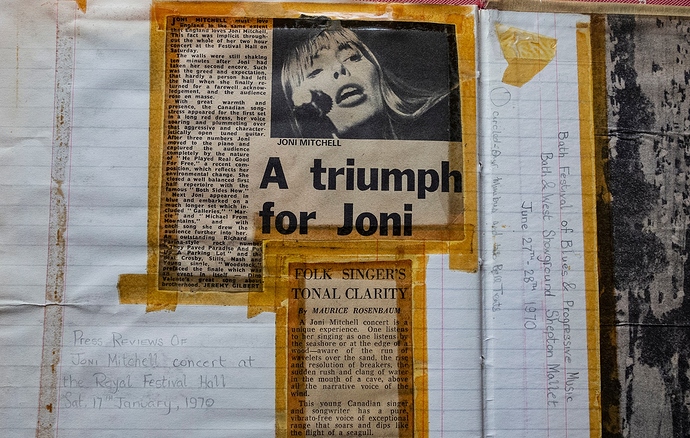 JONI MITCHELL must love
England to the same extent
that England loves Joni Mitchell.
This fact was implicit through-
out the whole of her two hour
concert at the Festival Hall on
Saturday.
The walls were still shaking
ten minutes after Joni had
taken her second encore. Such
was the greed and expectation,
that hardly a person had left
the hall when she finally re-
turned for a farewell acknow-
ledgement, and the audience
rose en masse.
With great warmth and
presence, the Canadian song-
stress appeared for the first set
in a long red dress, her voice
soaring and plummeting over
that aggressive and character-
istically open tuned guitar.
After three numbers Joni
moved to the piano and
captured the audience
completely by the nature
of "He Played Real Good
For Free," a recent com-
position, which reflects her
environmental change. She
closed a well balanced first
half repertoire with the
famous "Both Sides Now."
Next Joni appeared in
blue and embarked on a
much longer set which in-
cluded "Galleries," "Mar-
cie" and "Michael From
Mountains," and with
each song she drew the
audience further into her.
outstanding Richard
style rock number
Paved Paradise And
A Parking Lot" and the
Crosby, Stills, Nash and
Young single, "Woodstock"
prefaced the finale which was
event in itself
great song
brotherhood. JEREMY GILBERT
JONI MITCHELL
A triumph
for Joni
FOLK SINGER'S
TONAL CLARITY
By MAURICE ROSENBAUM
A Joni Mitchell concert is a
unique experience. One listens
to her singing as one listens by
the seashore or at the edge of a
wood—aware of the run of
wavelets over the sand, the rise
and resolution of breakers, the
sudden rush and clang of water
in the mouth of a cave, above
all the narrative voice of the
wind.
This young Canadian singer
and songwriter has a pure,
vibrato-free voice of exceptional
range that soars and dips like
the flight of a seagull.
Press Reviews Of
Joni Mitchell concert at
the Royal Festival Hall
Sat, 17th January, 1970
Bath Festival of Blues & Progressive Music
Bath & West Showground Shepton Mallet
June 27th - 28th 1970